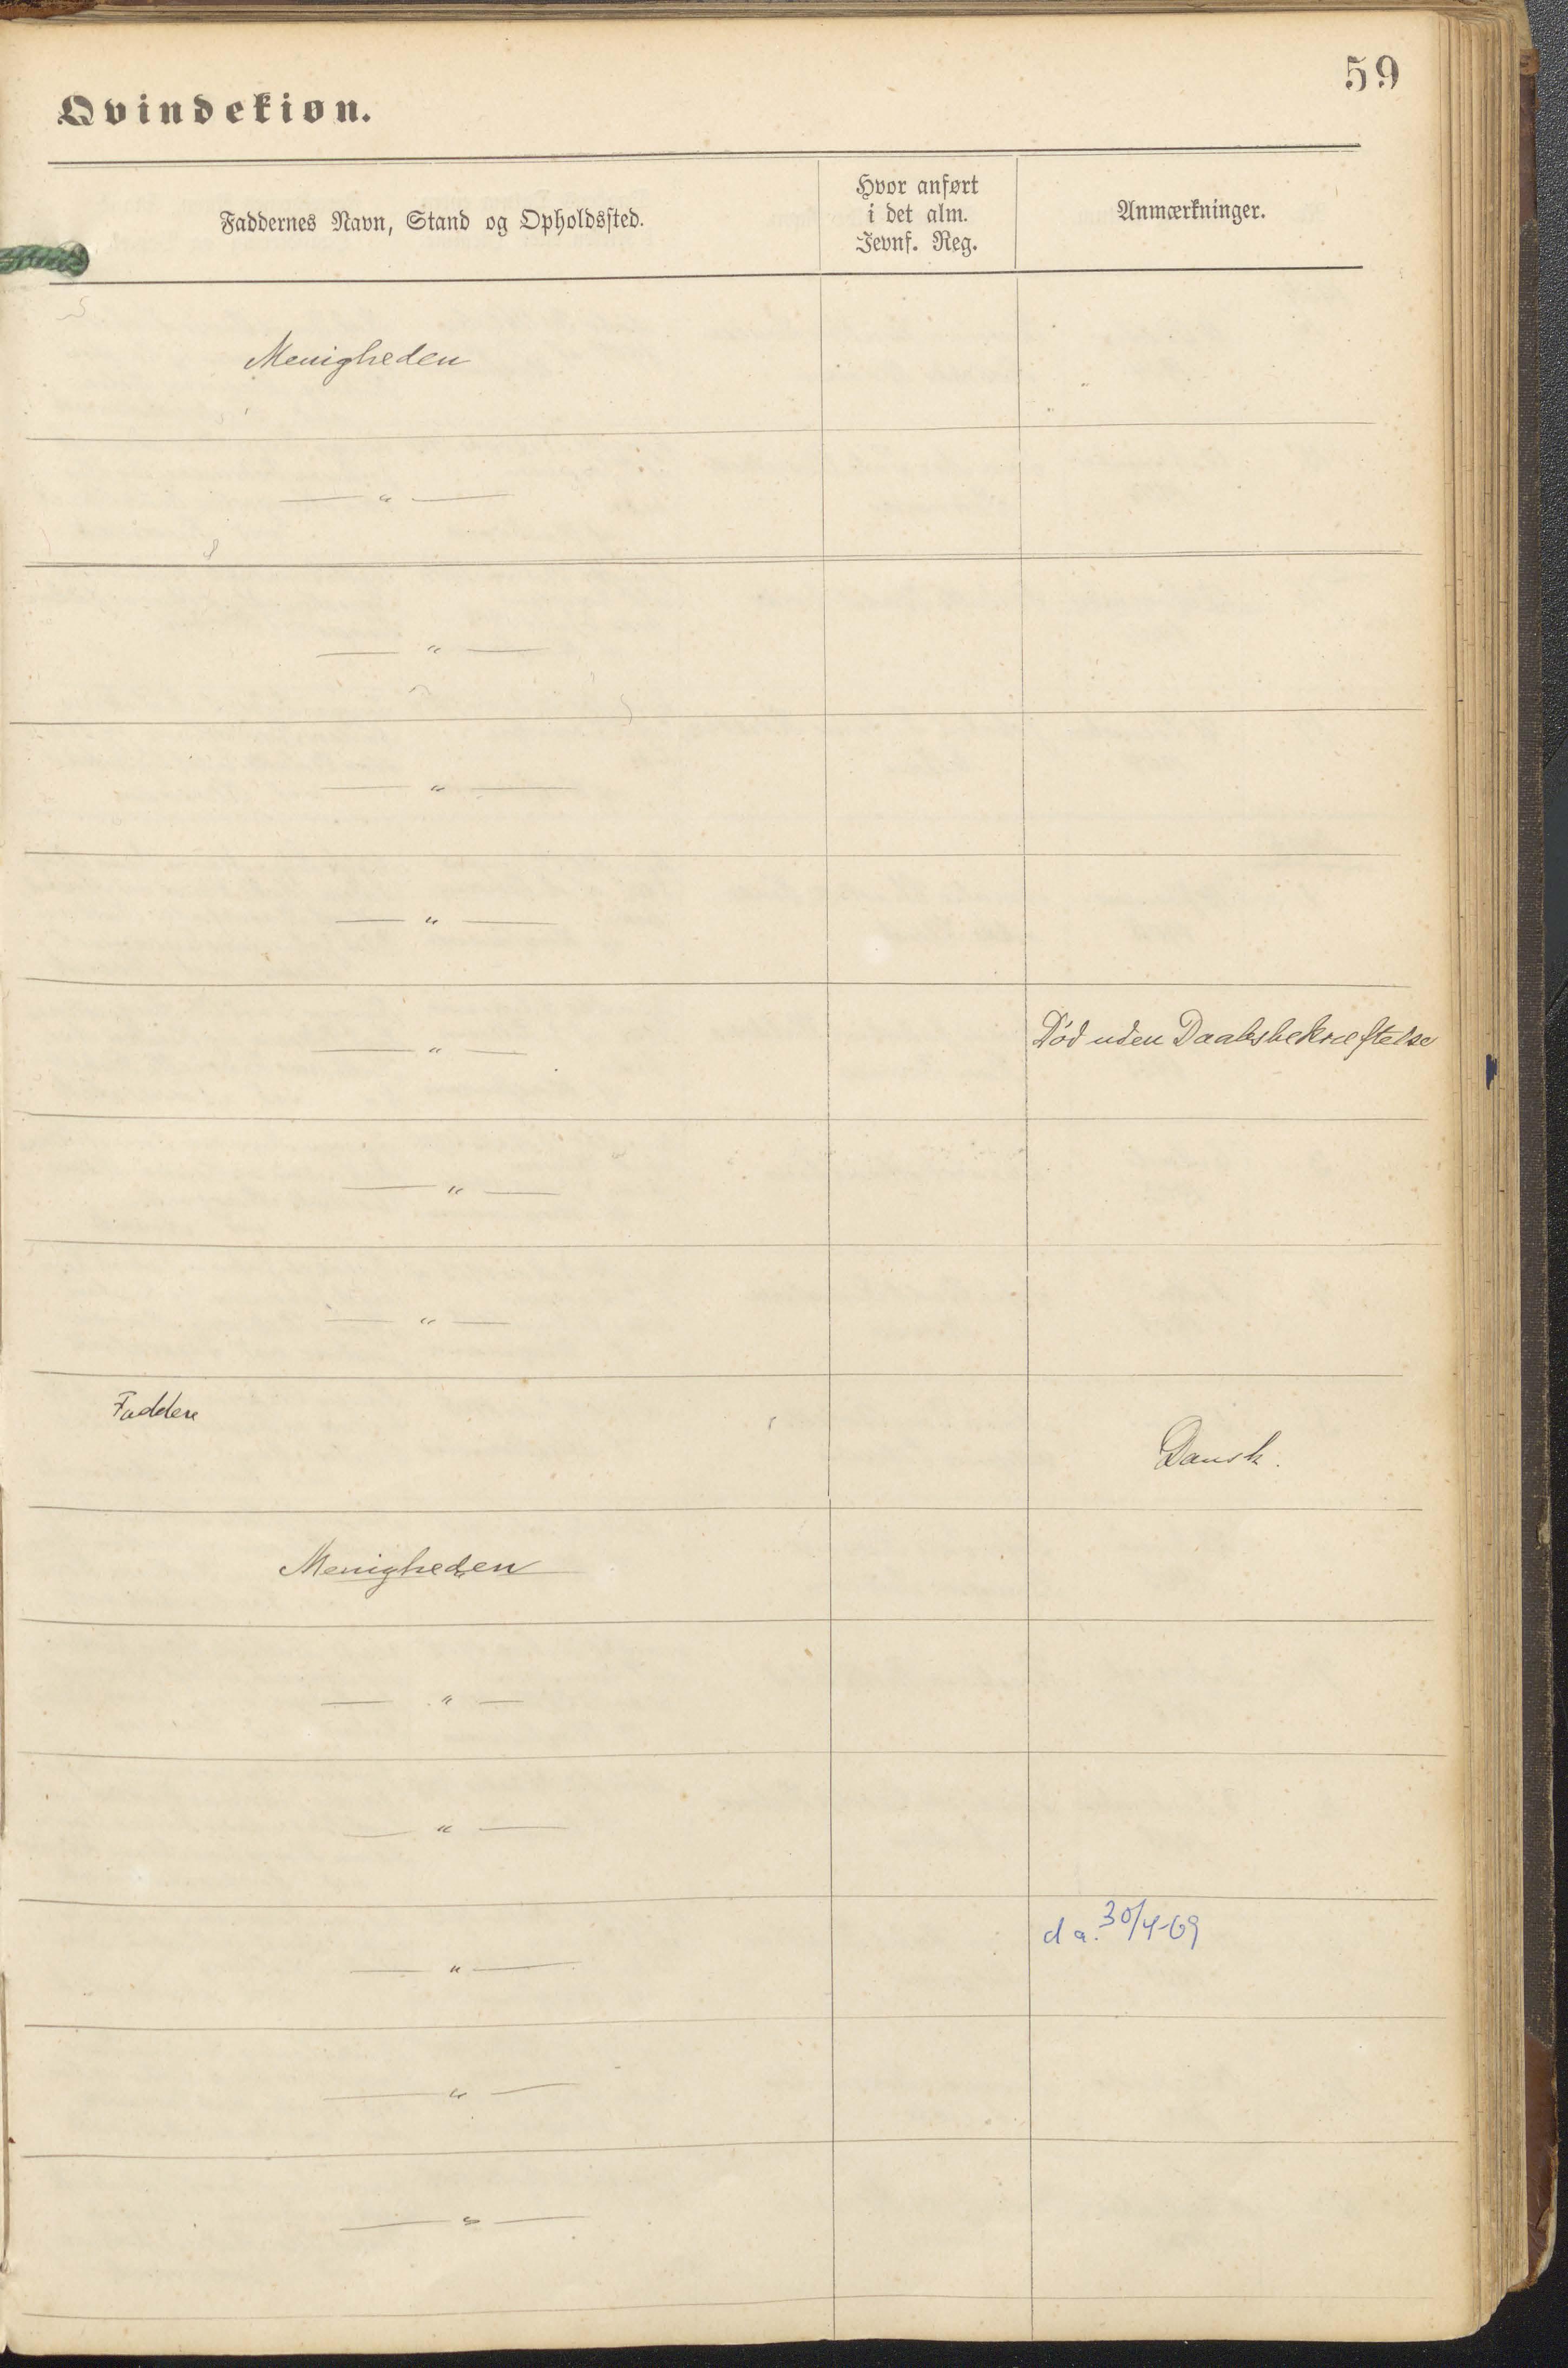 59
Qvindekiøn.
Faddernes Navn, Stand og Opholdssted.
Hvor anført
i det alm.
Jevnf. Reg.
Anmærkninger.
Menigheden
— " —
— " —
— " —
— " —
— " —
Død uden Daabsbekræftelse
— " —
— " —
Faddere
Dansk.
Menigheden
— " —
— " —
— " —
d a. 30/4-69
— " —
— " —